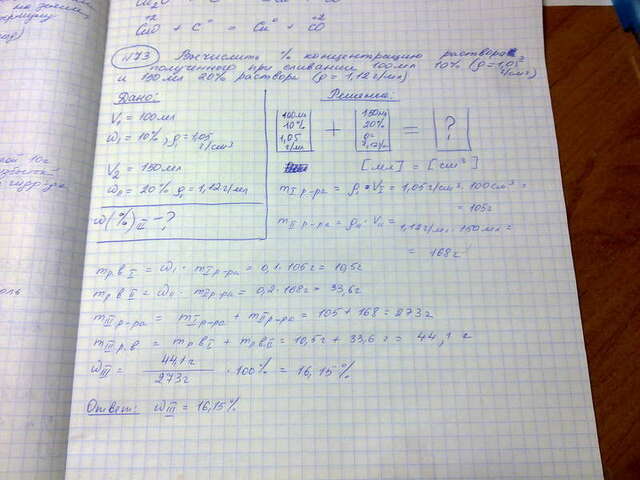 CuO + C° = Cu° + CO
№73 Вычислить % концентрацию раствора
полученного при сливании 100мл 10% (ρ=1,05 г/см³)
и 150мл 20% раствора (ρ=1,12г/мл)
Дано:
V₁ = 100мл
ω₁ = 10%, ρ₁=1,05 г/см³
V₂ = 150мл
ω₂ = 20% ρ=1,12г/мл
ω(%)III - ?
Решение:
100мл 10% 1,05 г/мл + 150мл 20% ρ= 1,12г/мл = ?
[мл] = [см³]
mI р-ра = ρ₁·VI = 1,05г/см³·100см³ =
= 105г
mII р-ра = ρII·VII = 1,12г/мл·150мл =
= 168г
mр.вI = ωI·mI р-ра = 0,1·105г = 10,5г
mр.вII = ωII·mII р-ра = 0,2·168г = 33,6г
mIII р-ра = mI р-ра + mII р-ра = 105+168 = 273г
mIII р.в = mр.вI + mр.вII = 10,5г + 33,6г = 44,1г
ωIII = 44,1г / 273г · 100% = 16,15%
Ответ: ωIII = 16,15%